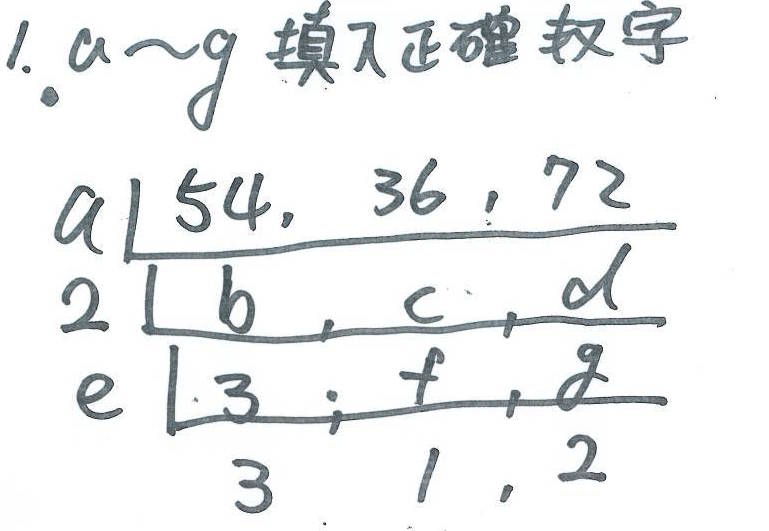 1. a~g 填入正確数字
a 54, 36, 72
2 b, c, d
e 3, f, g
3 1, 2